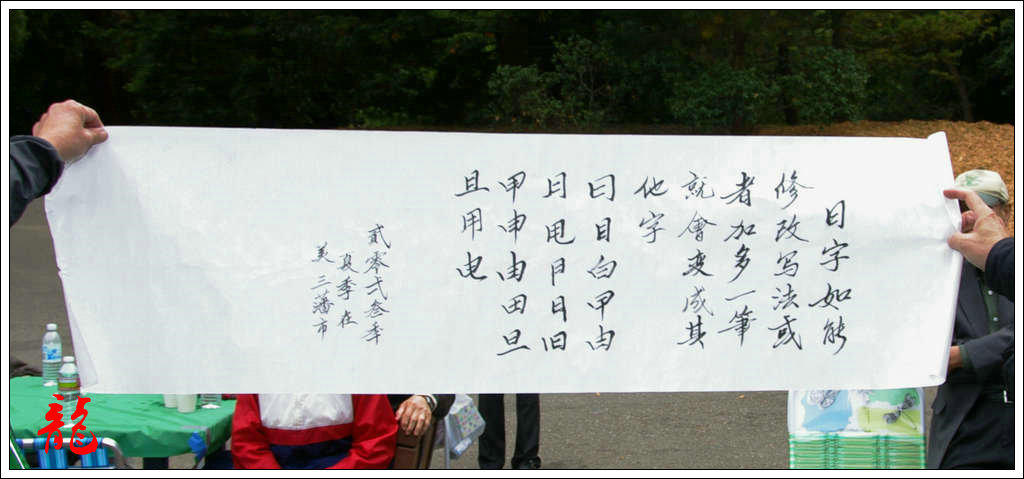 日字如能
修改写法或
者加多一筆
就會变成其
他字
曰目白甲由
日甩尸日旧
甲申由田旦
且用电
贰零弍叁年
夏季在
美三藩市
龍